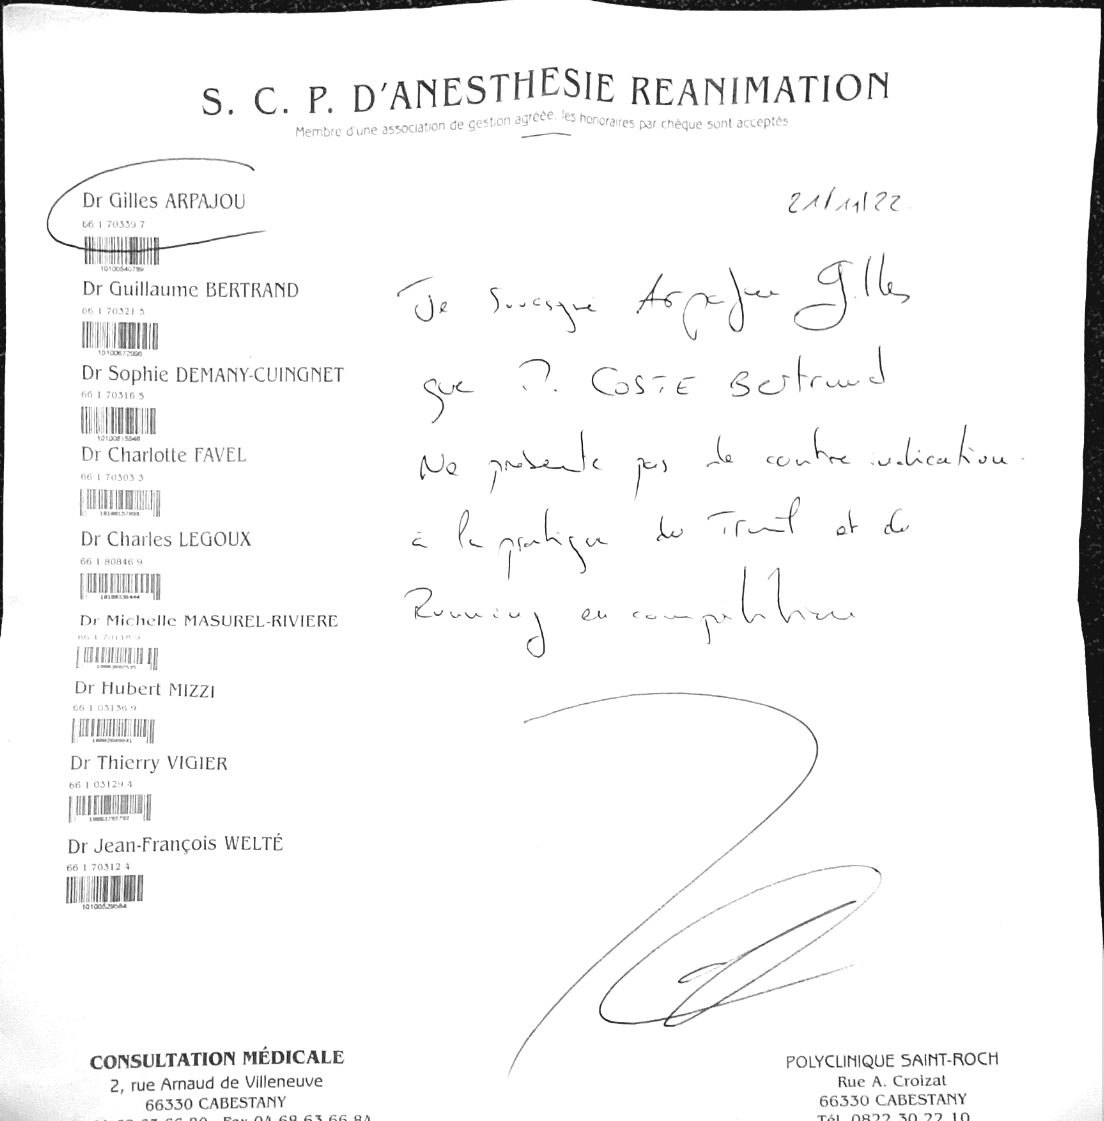 S. C. P. D'ANESTHESIE REANIMATION
Membre d'une association de gestion agréée, les honoraires par chèque sont acceptés
Dr Gilles ARPAJOU
66 1 70339 7
10100540789
Dr Guillaume BERTRAND
66 1 70321 5
10100672996
Dr Sophie DEMANY-CUINGNET
66 1 70316 5
Dr Charlotte FAVEL
66 1 70303 3
Dr Charles LEGOUX
66 1 80846 9
Dr Michelle MASUREL-RIVIERE
Dr Hubert MIZZI
66 1 03136 9
Dr Thierry VIGIER
66 1 03129 4
Dr Jean-François WELTÉ
66 1 70312 4
10100529584
21/11/22
Je Arpajou Gilles
que COSTE Bertrand
Ne présente pas de contre indication
à la pratique du Trail et du
Running en compétition
CONSULTATION MÉDICALE
2, rue Arnaud de Villeneuve
66330 CABESTANY
Fax 04 68 63 66 84
POLYCLINIQUE SAINT-ROCH
Rue A. Croizat
66330 CABESTANY
Tél. 0822 30 22 10